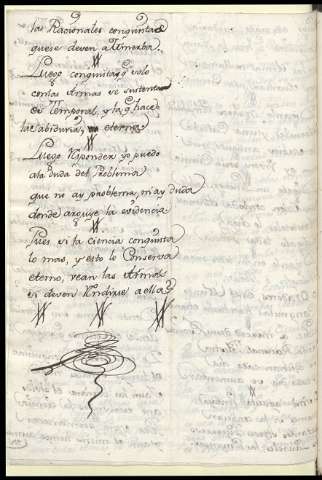 las Racionales conquistas
que se deven a Minerba.
Luego conquista q̃ solo
con las Armas se sustenta
es Temporal, y la q̃ hace
la Sabiduria, es eterna.
Luego Responder yo puedo
a la duda del Problema
que no ay problema, ni ay duda
donde arguye la evidencia
Pues si la ciencia conquista
lo mas, y esto lo Conserva
eterno, vean las Armas
si deven Rendirse a ella?